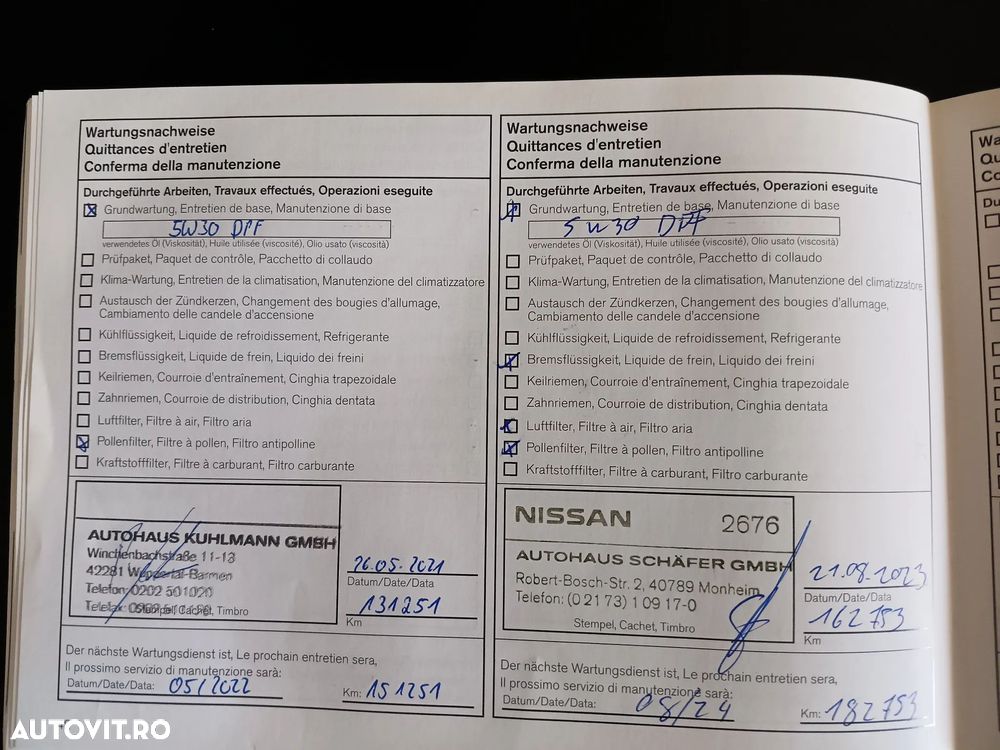 Wartungsnachweise
Quittances d'entretien
Conferma della manutenzione
Durchgeführte Arbeiten, Travaux effectués, Operazioni eseguite
Grundwartung, Entretien de base, Manutenzione di base
5W30 DPF
verwendetes Öl (Viskosität), Huile utilisée (viscosité), Olio usato (viscosità)
Prüfpaket, Paquet de contrôle, Pacchetto di collaudo
Klima-Wartung, Entretien de la climatisation, Manutenzione del climatizzatore
Austausch der Zündkerzen, Changement des bougies d'allumage,
Cambiamento delle candele d'accensione
Kühlflüssigkeit, Liquide de refroidissement, Refrigerante
Bremsflüssigkeit, Liquide de frein, Liquido dei freini
Keilriemen, Courroie d'entraînement, Cinghia trapezoidale
Zahnriemen, Courroie de distribution, Cinghia dentata
Luftfilter, Filtre à air, Filtro aria
Pollenfilter, Filtre à pollen, Filtro antipolline
Kraftstofffilter, Filtre à carburant, Filtro carburante
AUTOHAUS KUHLMANN GMBH
Winchenbachstraße 11-13
42281 Wuppertal-Barmen
Telefon: 0202 501020
Telefax:
Stempel, Cachet, Timbro
26.05.2021
Datum/Date/Data
131251
Km
Der nächste Wartungsdienst ist, Le prochain entretien sera,
Il prossimo servizio di manutenzione sarà:
Datum/Date/Data: 05/2022
Km: 151251
Wartungsnachweise
Quittances d'entretien
Conferma della manutenzione
Durchgeführte Arbeiten, Travaux effectués, Operazioni eseguite
Grundwartung, Entretien de base, Manutenzione di base
5w30 DPF
verwendetes Öl (Viskosität), Huile utilisée (viscosité), Olio usato (viscosità)
Prüfpaket, Paquet de contrôle, Pacchetto di collaudo
Klima-Wartung, Entretien de la climatisation, Manutenzione del climatizzatore
Austausch der Zündkerzen, Changement des bougies d'allumage,
Cambiamento delle candele d'accensione
Kühlflüssigkeit, Liquide de refroidissement, Refrigerante
Bremsflüssigkeit, Liquide de frein, Liquido dei freini
Keilriemen, Courroie d'entraînement, Cinghia trapezoidale
Zahnriemen, Courroie de distribution, Cinghia dentata
Luftfilter, Filtre à air, Filtro aria
Pollenfilter, Filtre à pollen, Filtro antipolline
Kraftstofffilter, Filtre à carburant, Filtro carburante
NISSAN 2676
AUTOHAUS SCHÄFER GMBH
Robert-Bosch-Str. 2, 40789 Monheim
Telefon: (02173) 1 09 17-0
Stempel, Cachet, Timbro
21.08.2023
Datum/Date/Data
162753
Km
Der nächste Wartungsdienst ist, Le prochain entretien sera,
Il prossimo servizio di manutenzione sarà:
Datum/Date/Data: 08/24
Km: 182753
Wa
Qu
Co
Du
AUTOVIT.RO